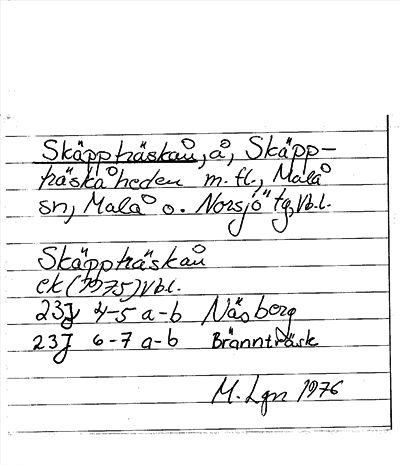 Skäppträskån, å, Skäpp-
träskåheden m. fl., Malå
sn, Malå o. Norsjö tg, Vb.l.
Skäppträskån
ek (1975) Vb.l.
23J 4-5 a-b Näsberg
23J 6-7 a-b Brännträsk
M. Lgn 1976